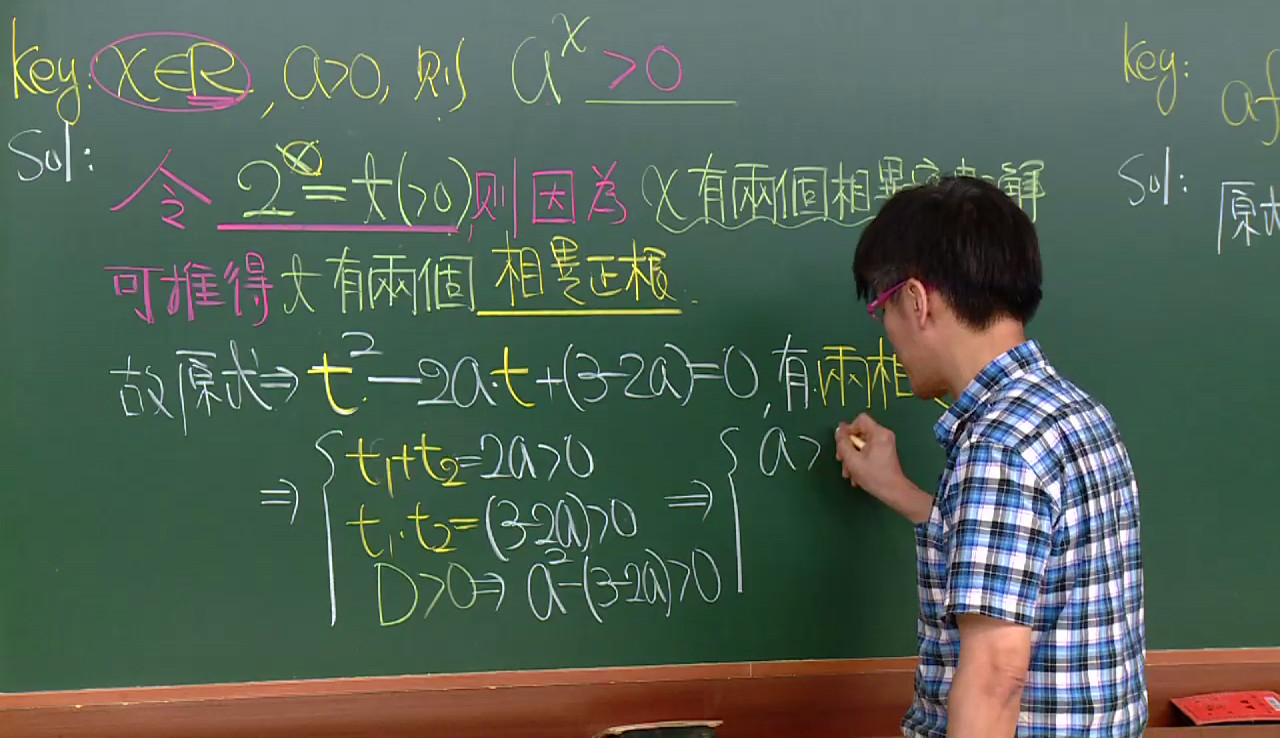 key: x∈R, a>0, 則 a^x >0
Sol:
令 2^x = t(>0), 則因為 x有兩個相異實數解
可推得 t 有兩個 相異正根.
故原式⇒ t²-2a·t+(3-2a)=0, 有兩相
⇒ { t₁+t₂=2a>0
t₁·t₂=(3-2a)>0
D>0⇒ a²-(3-2a)>0
⇒ { a>
key: af
Sol:
原式